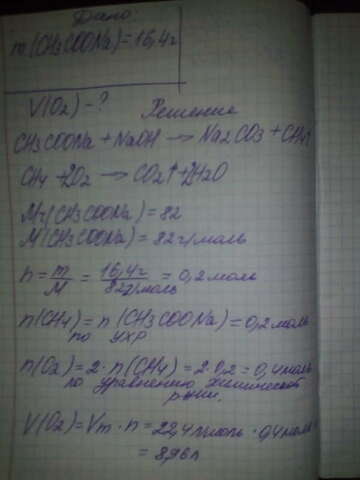 Дано:
m(CH3COONa)=16,4г
V(O2)-?
Решение
CH3COONa+NaOH→Na2CO3+CH4↑
CH4+2O2→CO2↑+2H2O
Mr(CH3COONa)=82
M(CH3COONa)=82г/моль
n=m/M=16,4г/82г/моль=0,2моль
n(CH4)=n(CH3COONa)=0,2моль
по УХР
n(O2)=2·n(CH4)=2·0,2=0,4моль
по уравнению химической
р-ции.
V(O2)=Vm·n=22,4л/моль·0,4моль
=8,96л